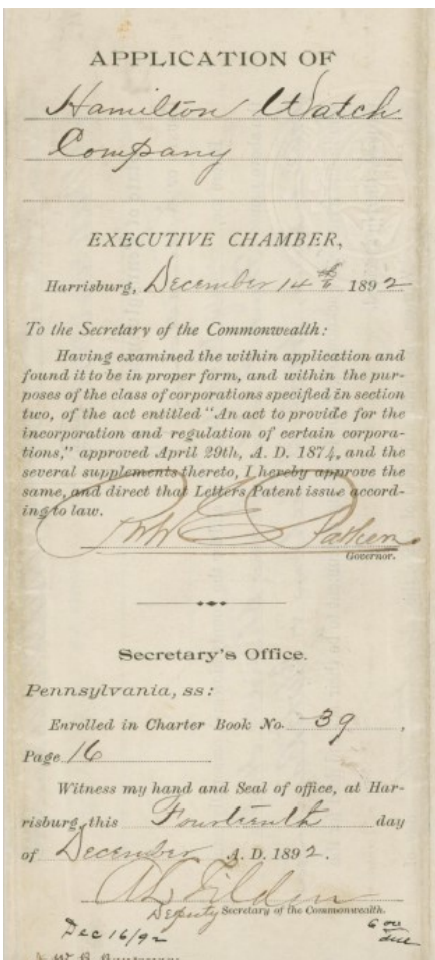 APPLICATION OF
Hamilton Watch
Company
EXECUTIVE CHAMBER,
Harrisburg, December 14th 1892
To the Secretary of the Commonwealth:
Having examined the within application and
found it to be in proper form, and within the pur-
poses of the class of corporations specified in section
two, of the act entitled "An act to provide for the
incorporation and regulation of certain corpora-
tions," approved April 29th, A. D. 1874, and the
several supplements thereto, I hereby approve the
same, and direct that Letters Patent issue accord-
ing to law.
Robt E Pattison
Governor.
Secretary's Office.
Pennsylvania, ss:
Enrolled in Charter Book No. 39,
Page 16
Witness my hand and Seal of office, at Har-
risburg, this Fourteenth day
of December A. D. 1892.
A L Tilden
Deputy Secretary of the Commonwealth.
Dec 16/92
6 00
due